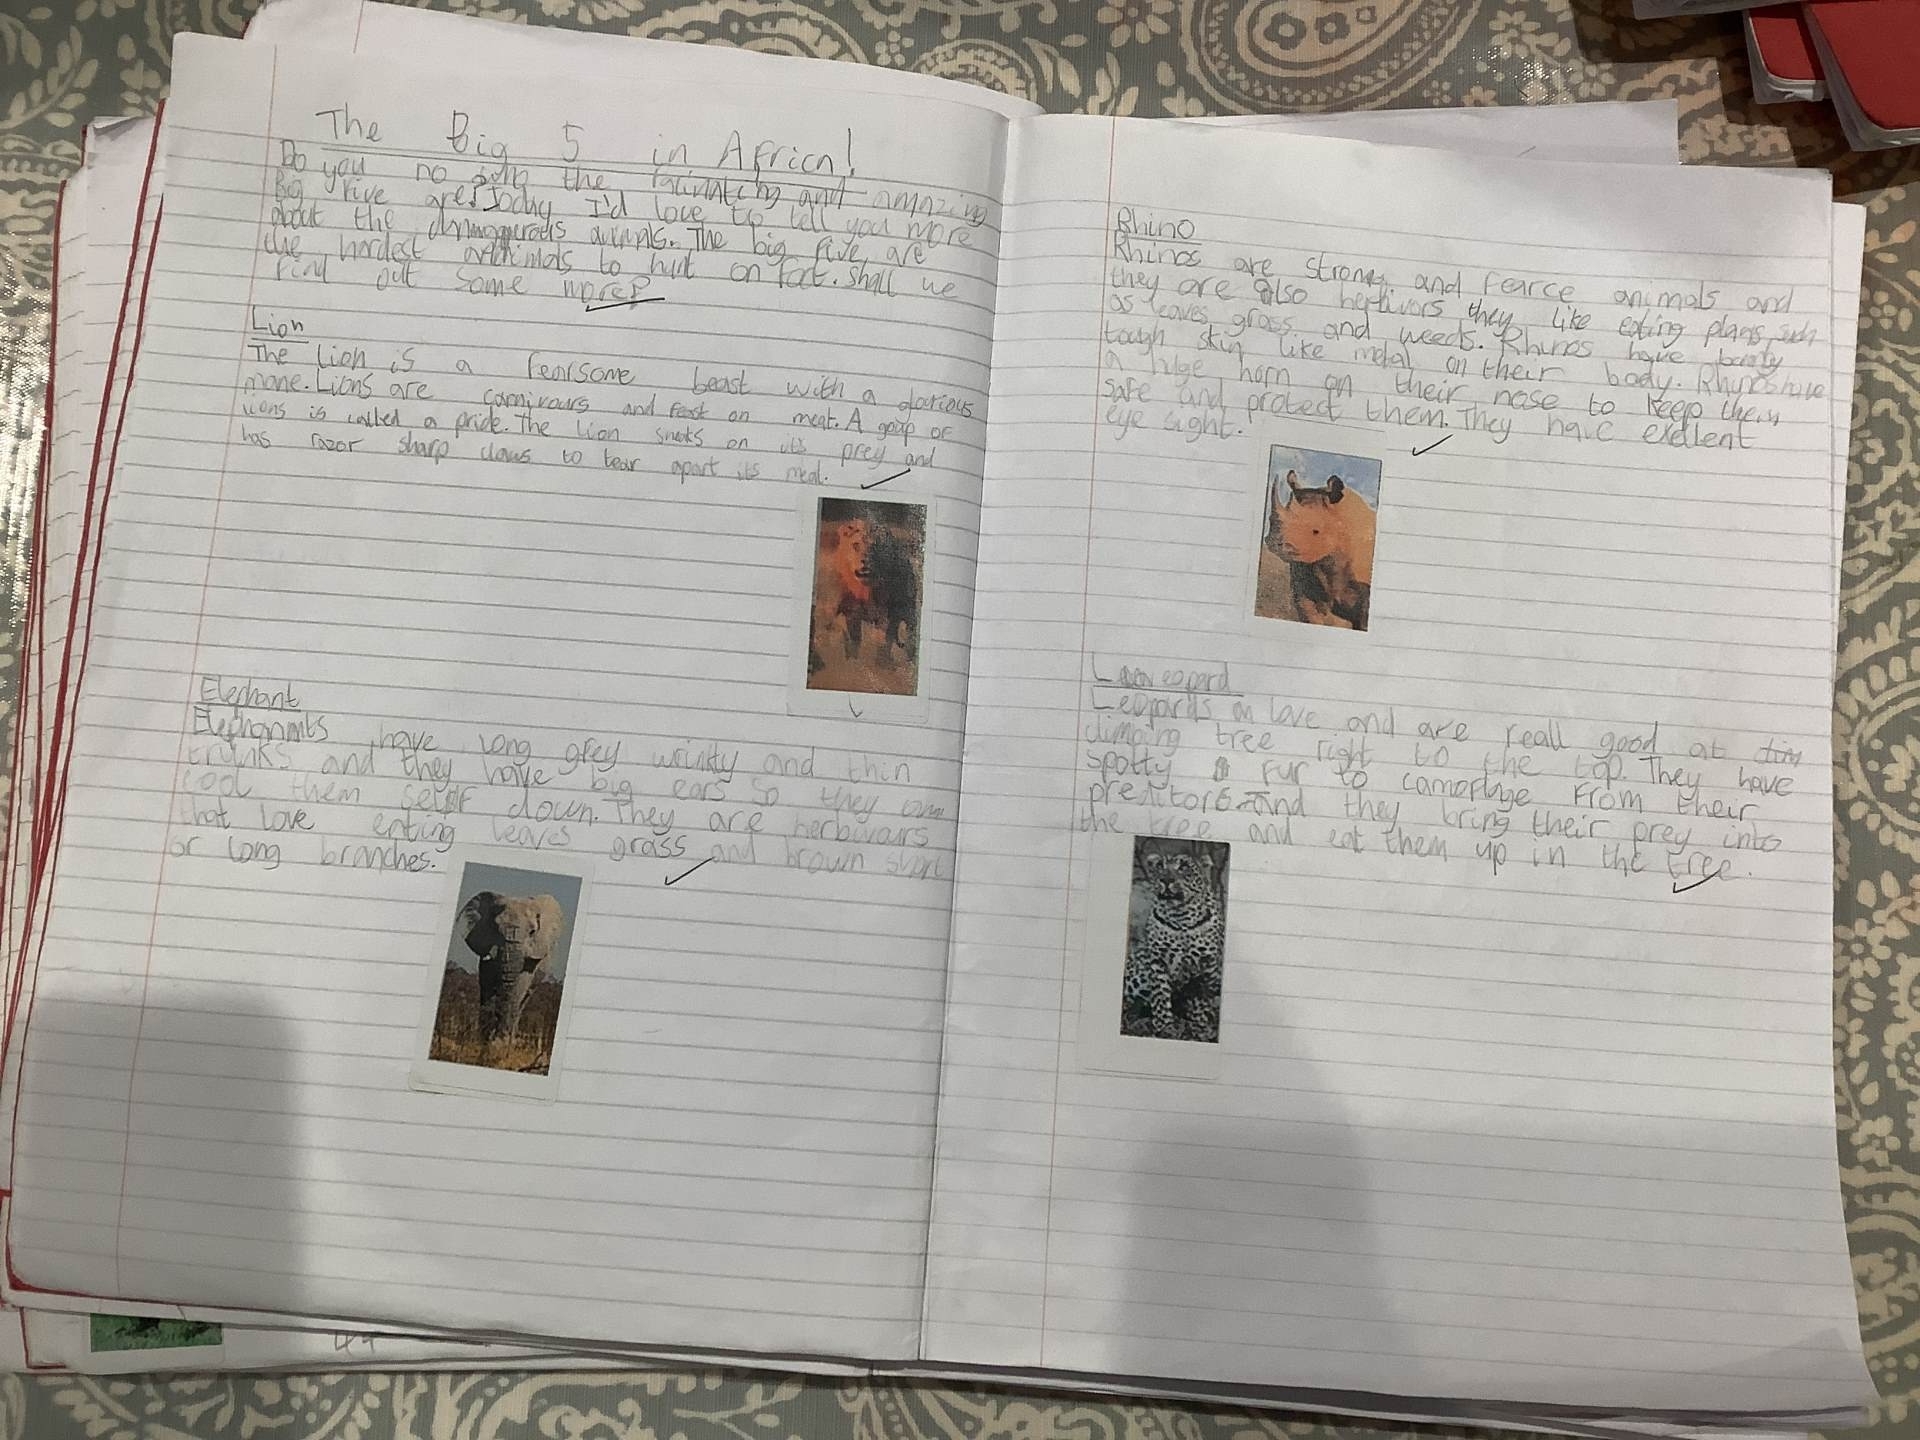 The Big 5 in Africa!
Do you no the and amazing
Big five are? Today I'd love to tell you more
about the animals. The big five are
the hardest to hunt on foot. Shall we
find out some more?
Lion
The Lion is a fearsome beast with a glorious
mane. Lions are carnivours and feast on meat. A goup of
lions is called a pride. The Lion sneks on it's prey and
has razor sharp claws to tear apart its meal.
Elephant
have long grey wrinkly and thin
trunks and they have big ears so they
cool them self down. They are herbivours
that love eating leaves grass and brown short
or long branches.
Rhino
Rhinos are strong and fearce animals and
they are also they like eating such
as leaves, grass and weeds. Rhinos have
tough skin like metal on their body. Rhinos have
a huge horn on their nose to keep them
safe and protect them. They have exellent
eye sight.
Leopards love and are reall good at
climbing tree right to the top. They have
spotty fur to camoflage from their
and they bring their prey into
the tree and eat them up in the tree.